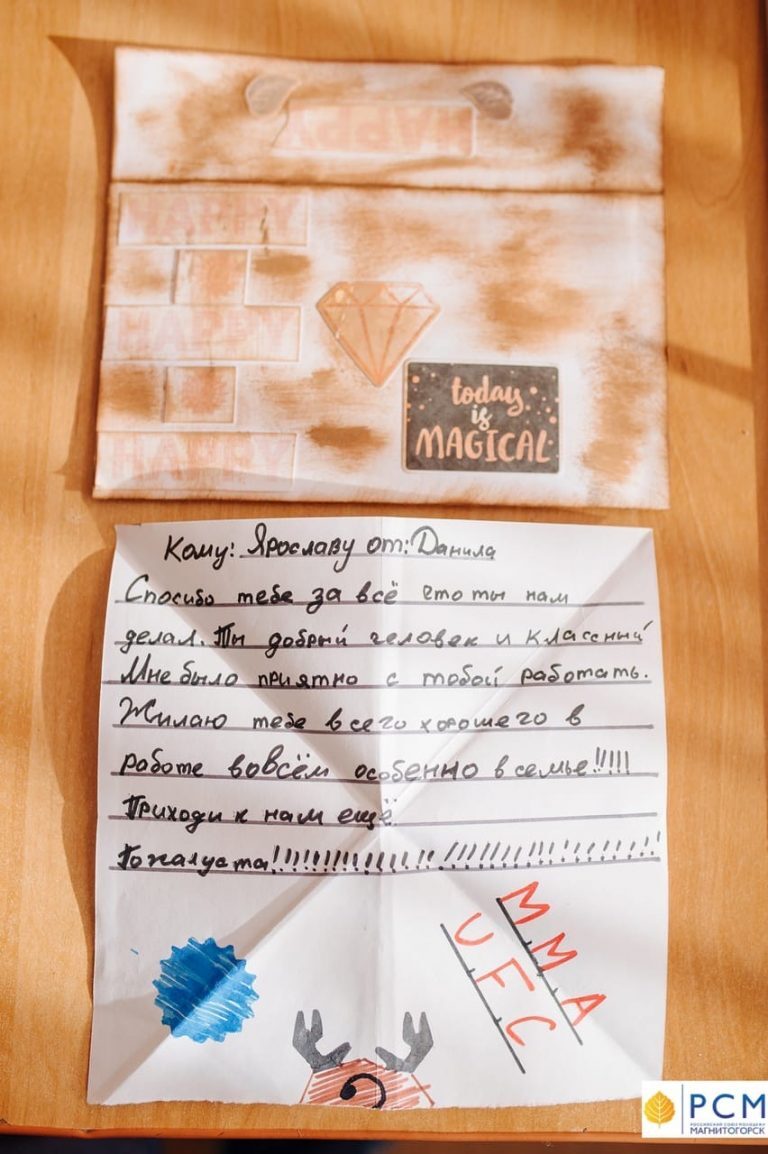 HAPPY
HAPPY
HAPPY
HAPPY
today
is
MAGICAL
Кому: Ярославу от: Данила
Спосибо тебе за всё что ты нам
делал. Ты добрый человек и классный
Мне было приятно с тобой работать.
Жилаю тебе всего хорошего в
работе вовсём особенно в семье!!!!!
Приходи к нам ещё.
Пожалуста!!!!!!!!!!!!!!!!!!!!!!!!!!!!!!!!
MMA
UFC
РСМ
РОССИЙСКИЙ СОЮЗ МОЛОДЕЖИ
МАГНИТОГОРСК